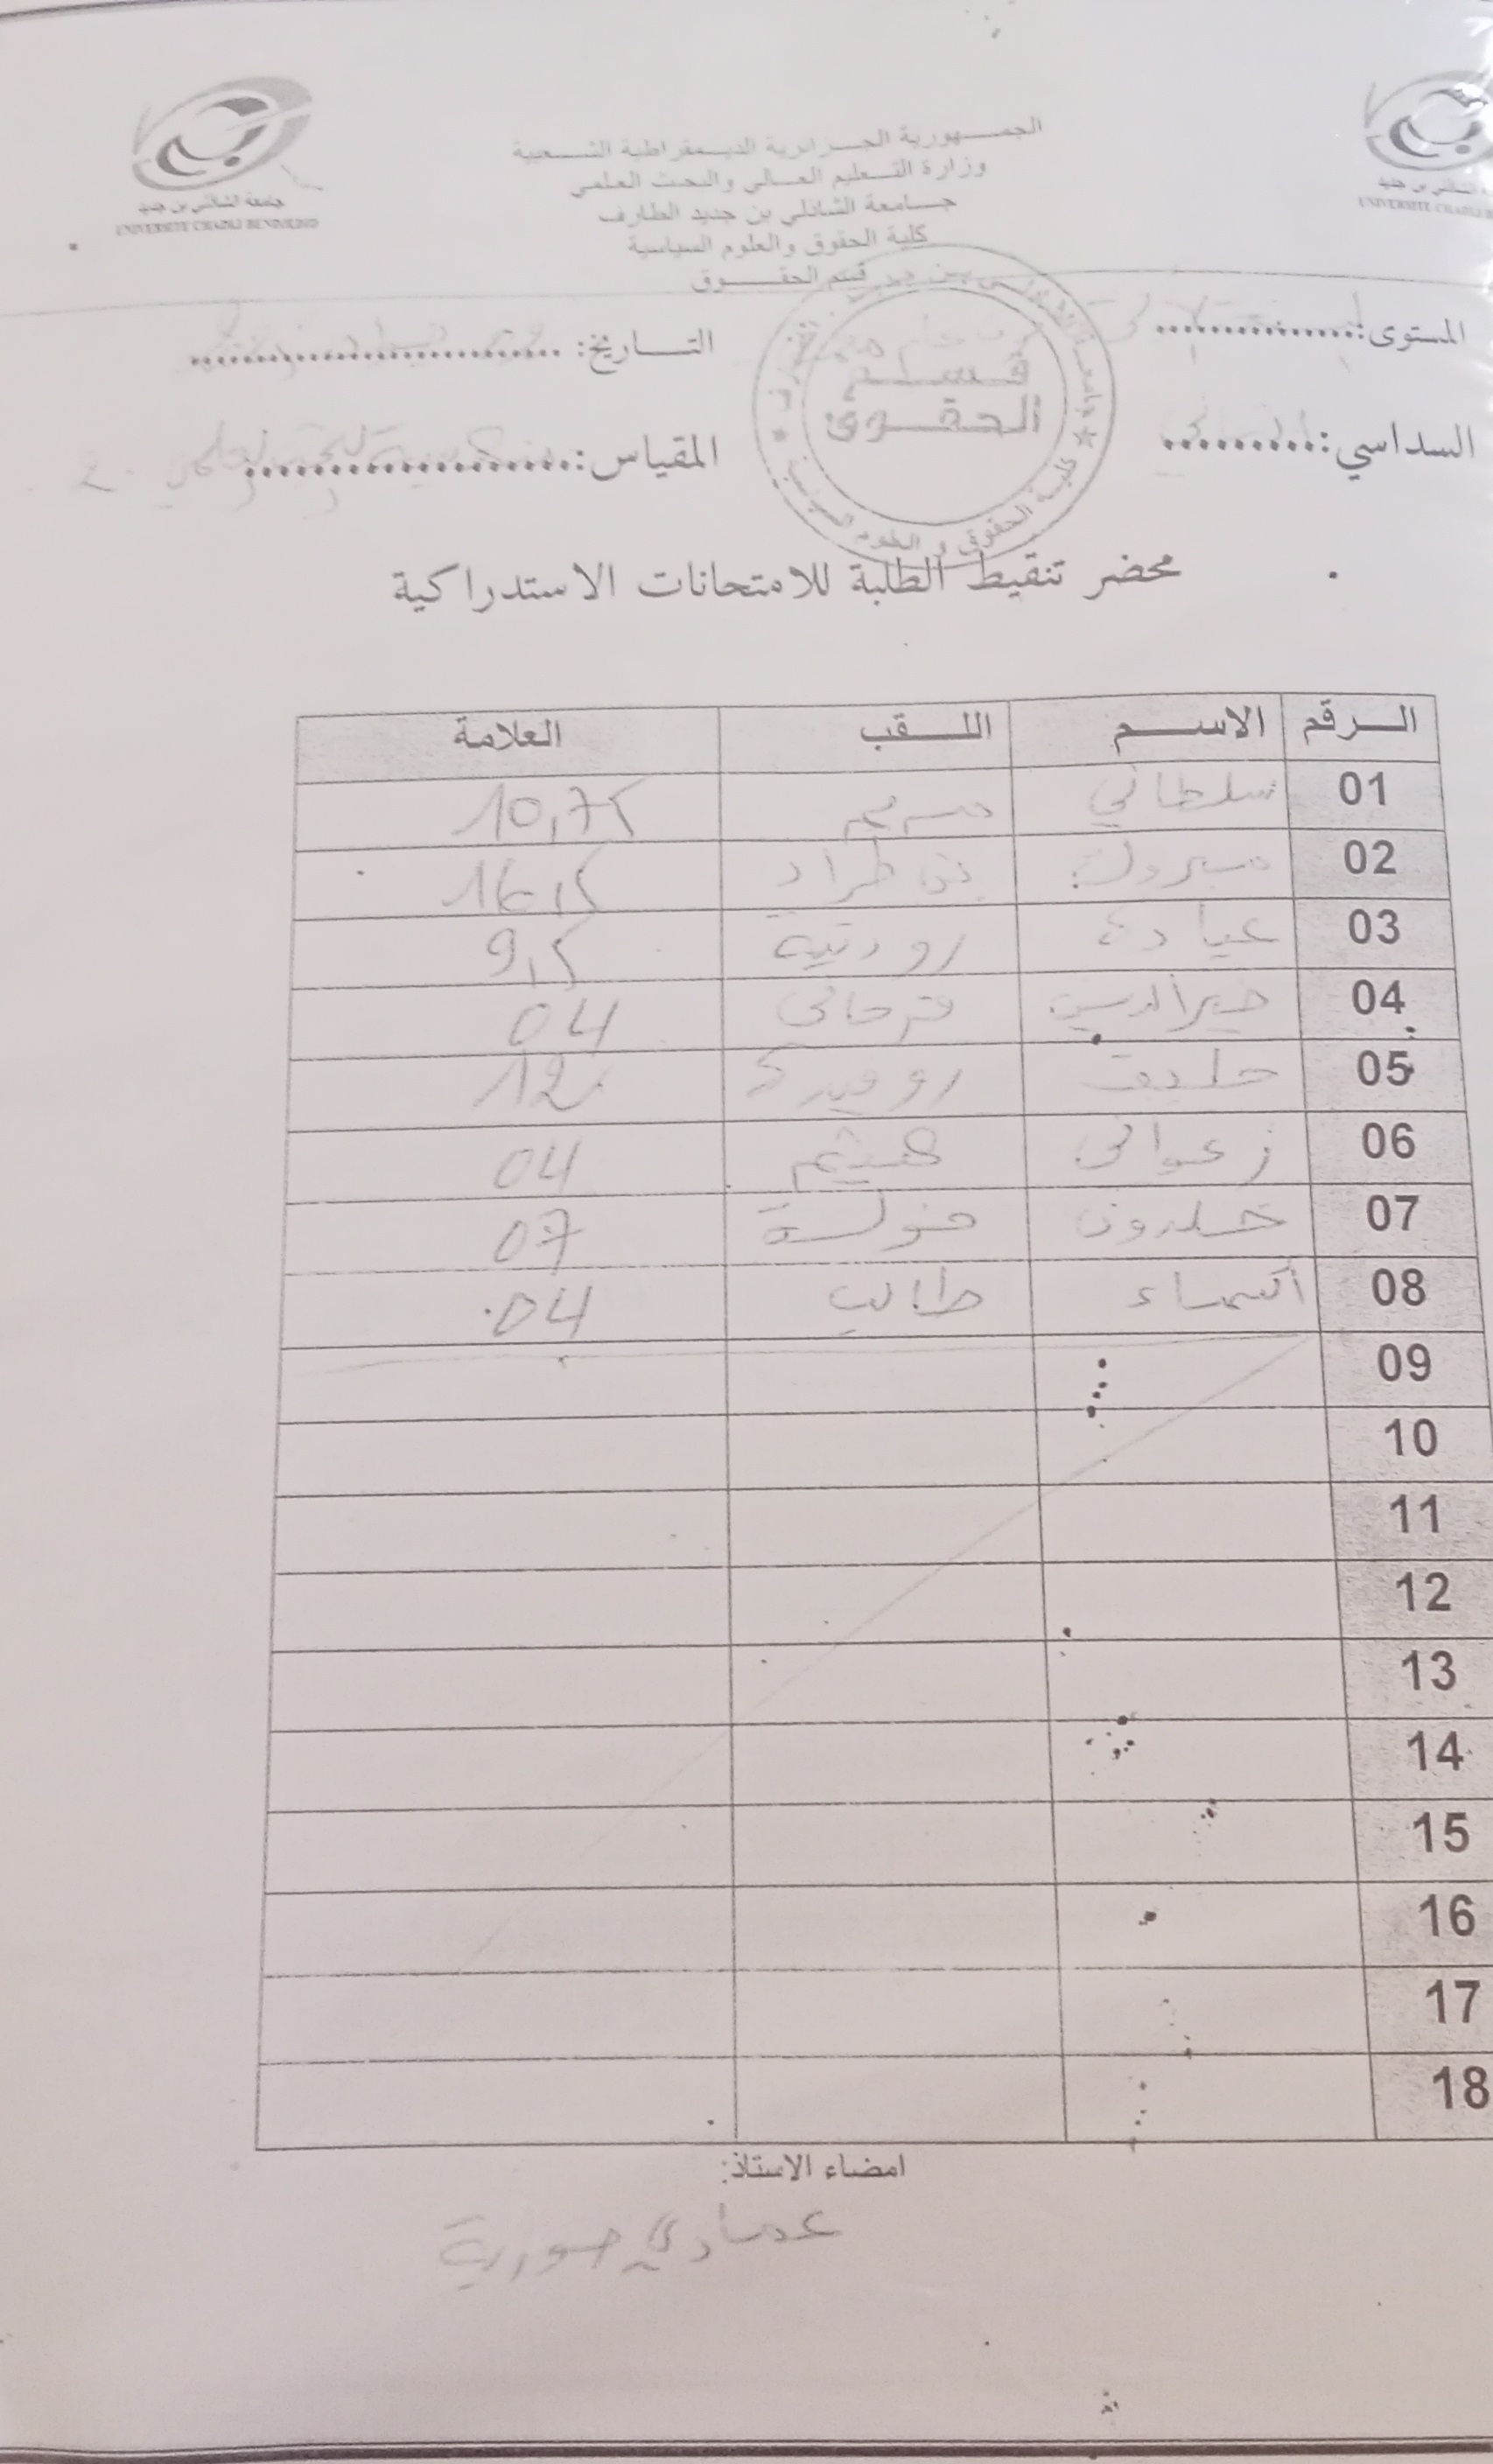 الجمهورية الجزائرية الديمقراطية الشعبية
وزارة التعليم العالي والبحث العلمي
جامعة الشاذلي بن جديد الطارف
كلية الحقوق والعلوم السياسية
قسم الحقوق
جامعة الشاذلي بن جديد
UNIVERSITE CHADLI BENDJEDID
جامعة الشاذلي بن جديد
المستوى:
التاريخ:
قسم
الحقوق
كلية الحقوق و العلوم السياسية
السداسي:
المقياس:
محضر تنقيط الطلبة للامتحانات الاستدراكية
الرقم الاسم اللقب العلامة
01 سلطاني مريم 10,75
02 مبروك بن طراد 16,5
03 عيادة 9,5
04 خير الدين فرحاني 04
05 12
06 زعواني هيثم 04
07 خلدون خولة 07
08 أسماء طالب 04
09
10
11
12
13
14
15
16
17
18
امضاء الاستاذ:
عمادي حورية